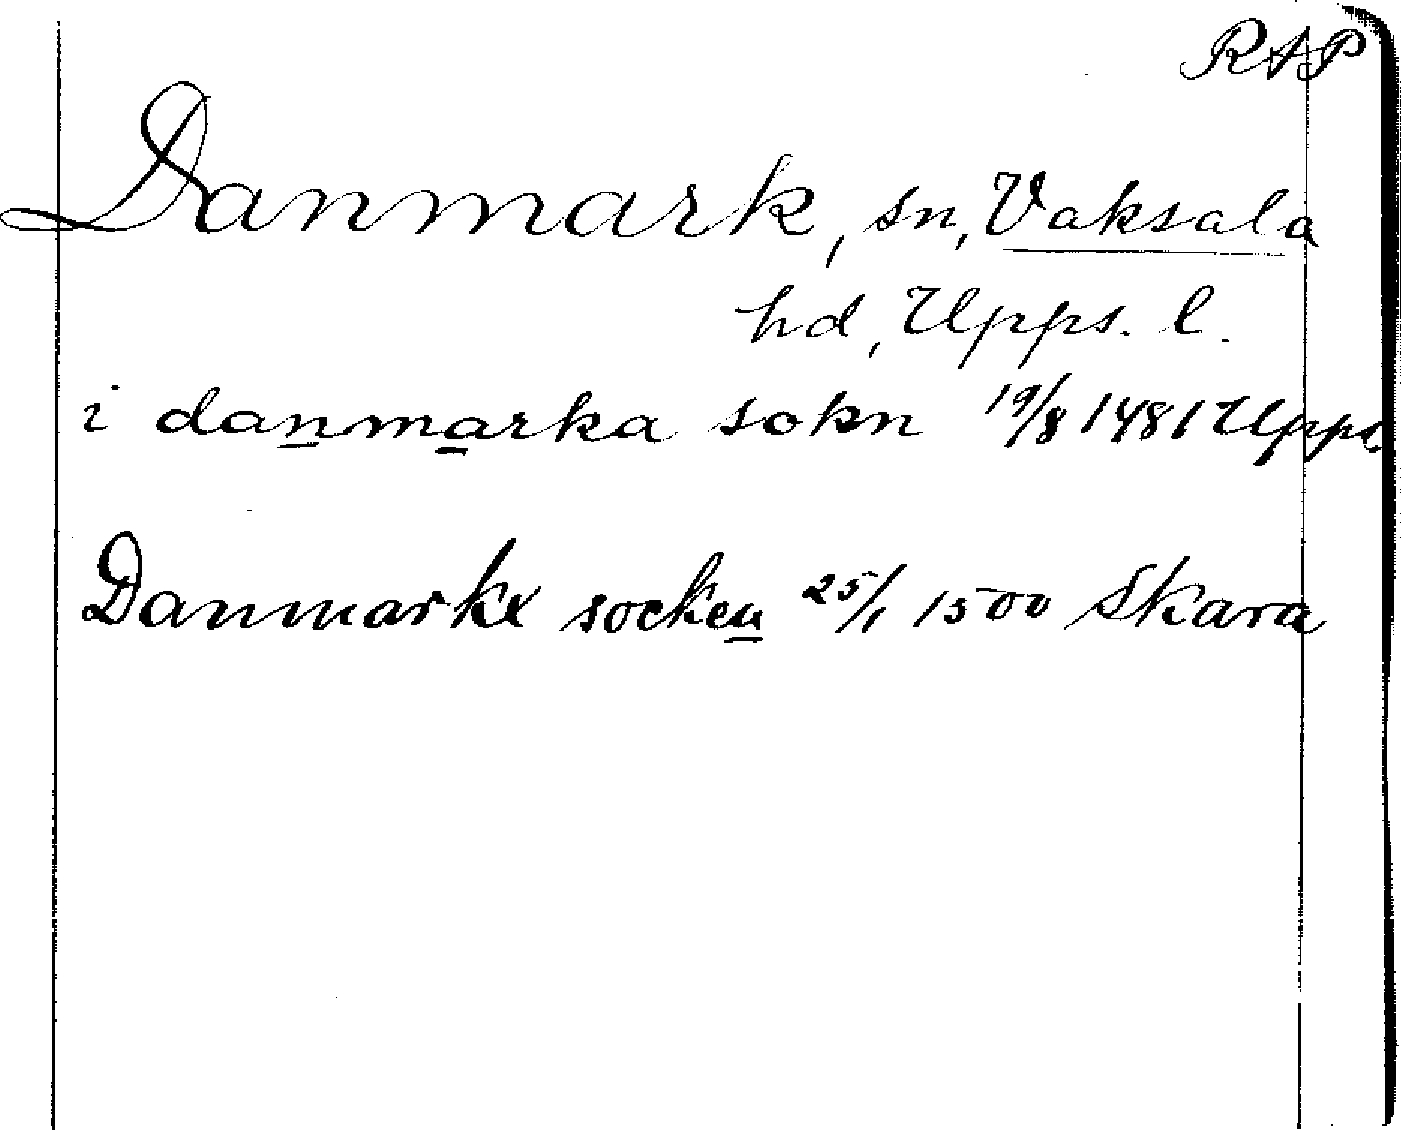 RAP
Danmark, sn, Vaksala
hd, Upps. l.
i danmarka sokn 19/8 1481 Upps.
Danmarkx socken 25/1 1500 Skara